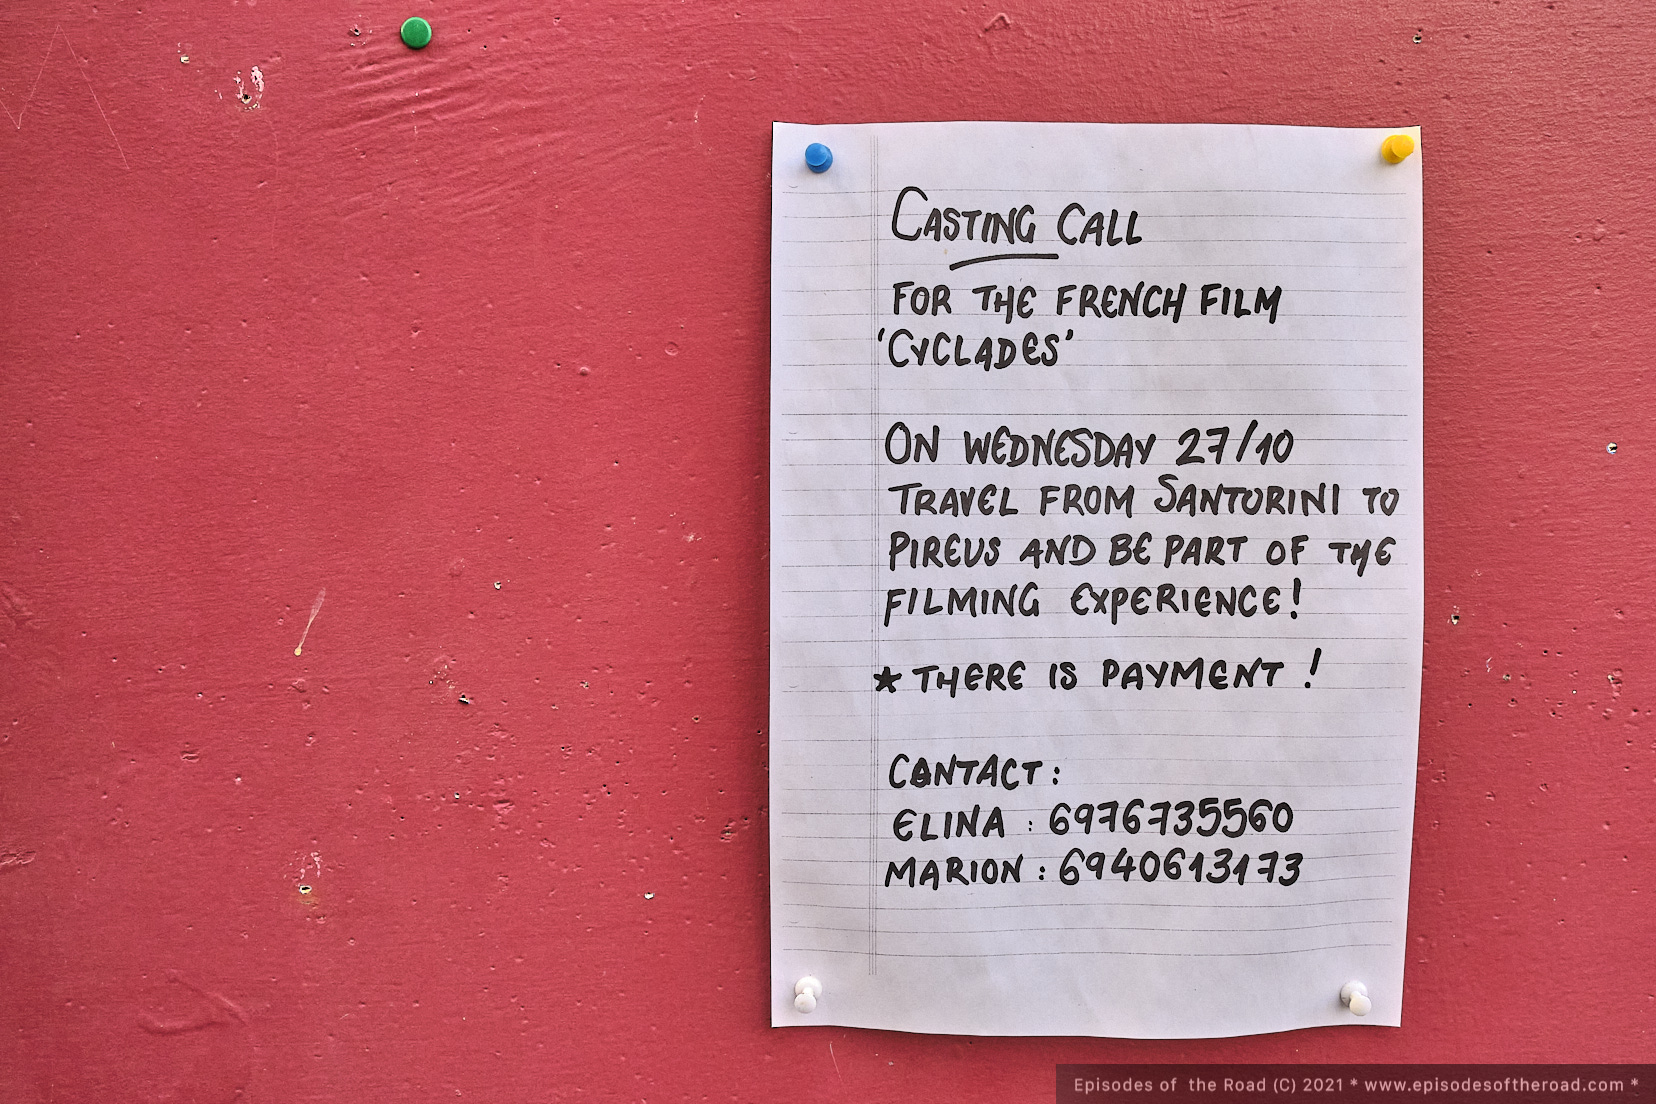 CASTING CALL
FOR THE FRENCH FILM
'CYCLADES'
ON WEDNESDAY 27/10
TRAVEL FROM SANTORINI TO
PIREUS AND BE PART OF THE
FILMING EXPERIENCE!
★ THERE IS PAYMENT !
CONTACT:
ELINA : 6976735560
MARION : 6940613173
Episodes of the Road (C) 2021 * www.episodesoftheroad.com *